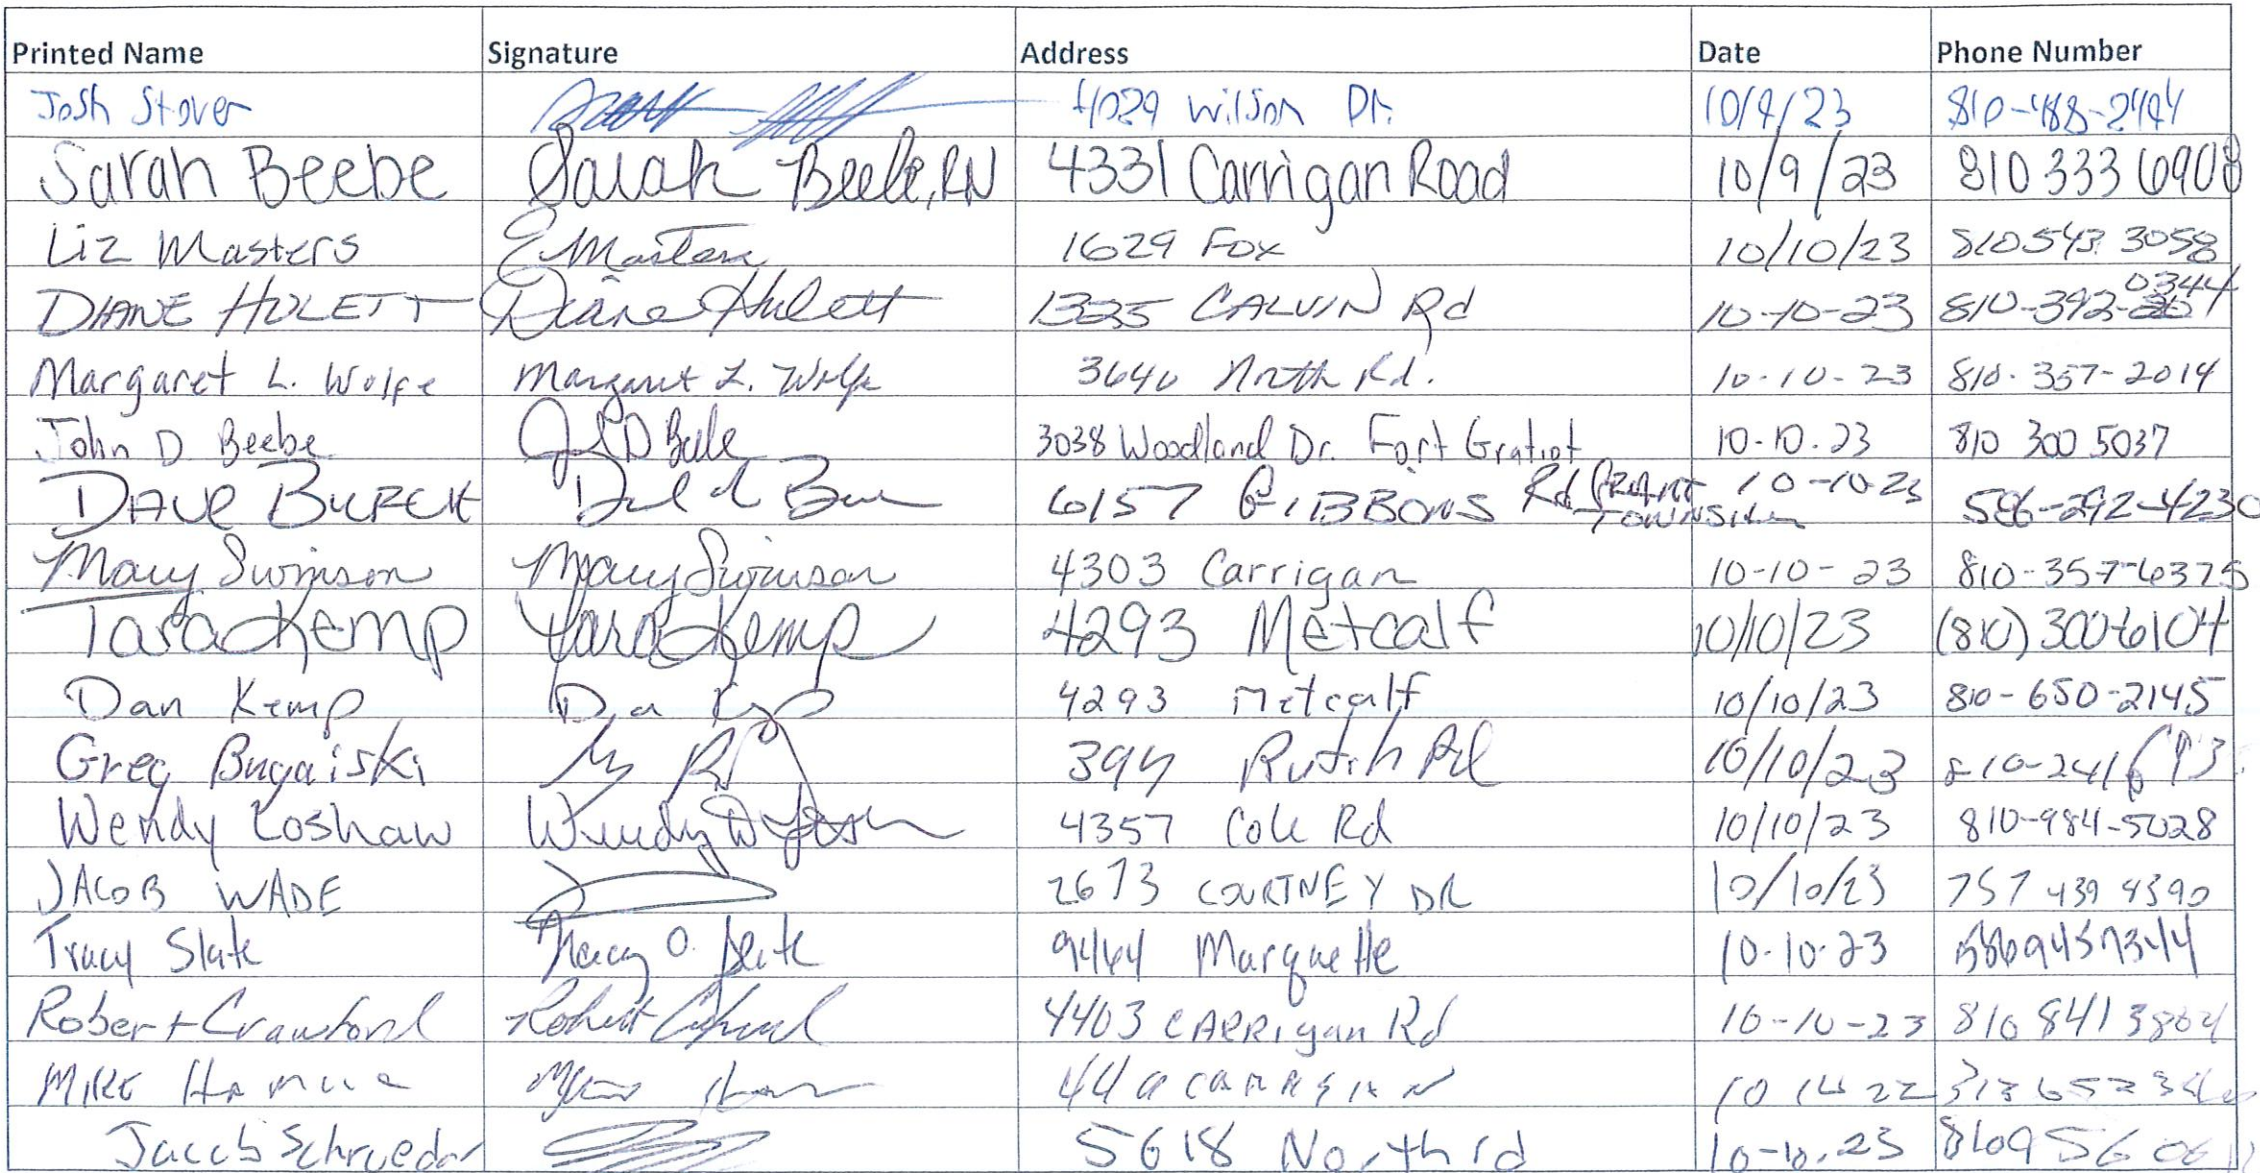 Printed Name Signature Address Date Phone Number
Josh Stover 4029 Wilson Dr. 10/9/23 810-488-2494
Sarah Beebe Sarah Beebe, RN 4331 Carrigan Road 10/9/23 810 333 6908
Liz Masters E Masters 1629 Fox 10/10/23 810 543 3058
DIANE HULETT Diane Hulett 1325 CALVIN Rd 10-10-23 810-392-0344
Margaret L. Wolfe Margaret L. Wolfe 3640 North Rd. 10-10-23 810-357-2014
John D Beebe 3038 Woodland Dr. Fort Gratiot 10-10.23 810 300 5037
DAVE BURCH 6157 GIBBONS Rd Grant Township 10-10-23 586-292-4230
Mary Swinson Mary Swinson 4303 Carrigan 10-10-23 810-357-6375
Tara Kemp Tara Kemp 4293 Metcalf 10/10/23 (810) 300-6104
Dan Kemp 4293 Metcalf 10/10/23 810-650-2145
Greg Bugaiski Rd 10/10/23
Wendy Loshaw Wendy 4357 Cole Rd 10/10/23 810-984-5028
JACOB WADE 2673 COURTNEY DR 10/10/23 757 439 4390
Tracy Slate Tracy O. Slate 9464 Marquette 10-10-23 5869457344
Robert Crawford Robert 4403 CARRigan Rd 10-10-23 810 841 3804
MIKE 10
Jacob Schroeder 5618 North rd 10-10.23